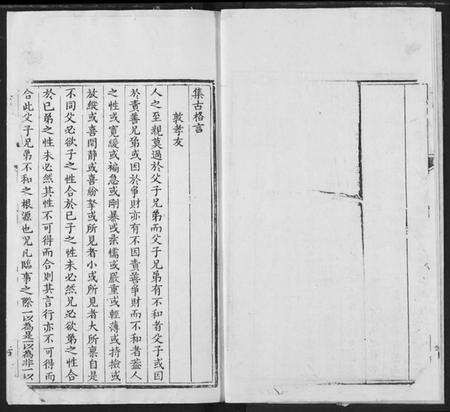 集古格言
敦孝友
人之至親莫過於父子兄弟而父子兄弟有不和者父子或因
於責善兄弟或因於爭財亦有不因責善爭財而不和者蓋人
之性或寬緩或褊急或剛暴或柔懦或嚴重或輕薄或持撿或
放縱或喜閒靜或喜紛拏或所見者小或所見者大所稟自是
不同父必欲子之性合於己子之性未必然兄必欲弟之性合
於己弟之性未必然其性不可得而合則其言行亦不可得而
合此父子兄弟不和之根源也況凡臨事之際一以為是一以為非一以